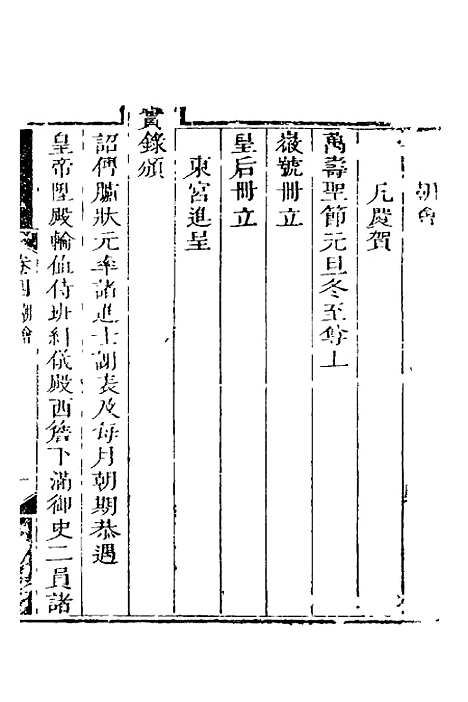 朝會
凡慶賀
萬壽聖節元旦冬至尊上
徽號冊立
皇后冊立
東宮進呈
實錄頒
詔傳臚狀元率諸進士謝表及每月朝期恭遇
皇帝陞殿輪值侍班糾儀殿西簷下滿御史二員諸
朝會